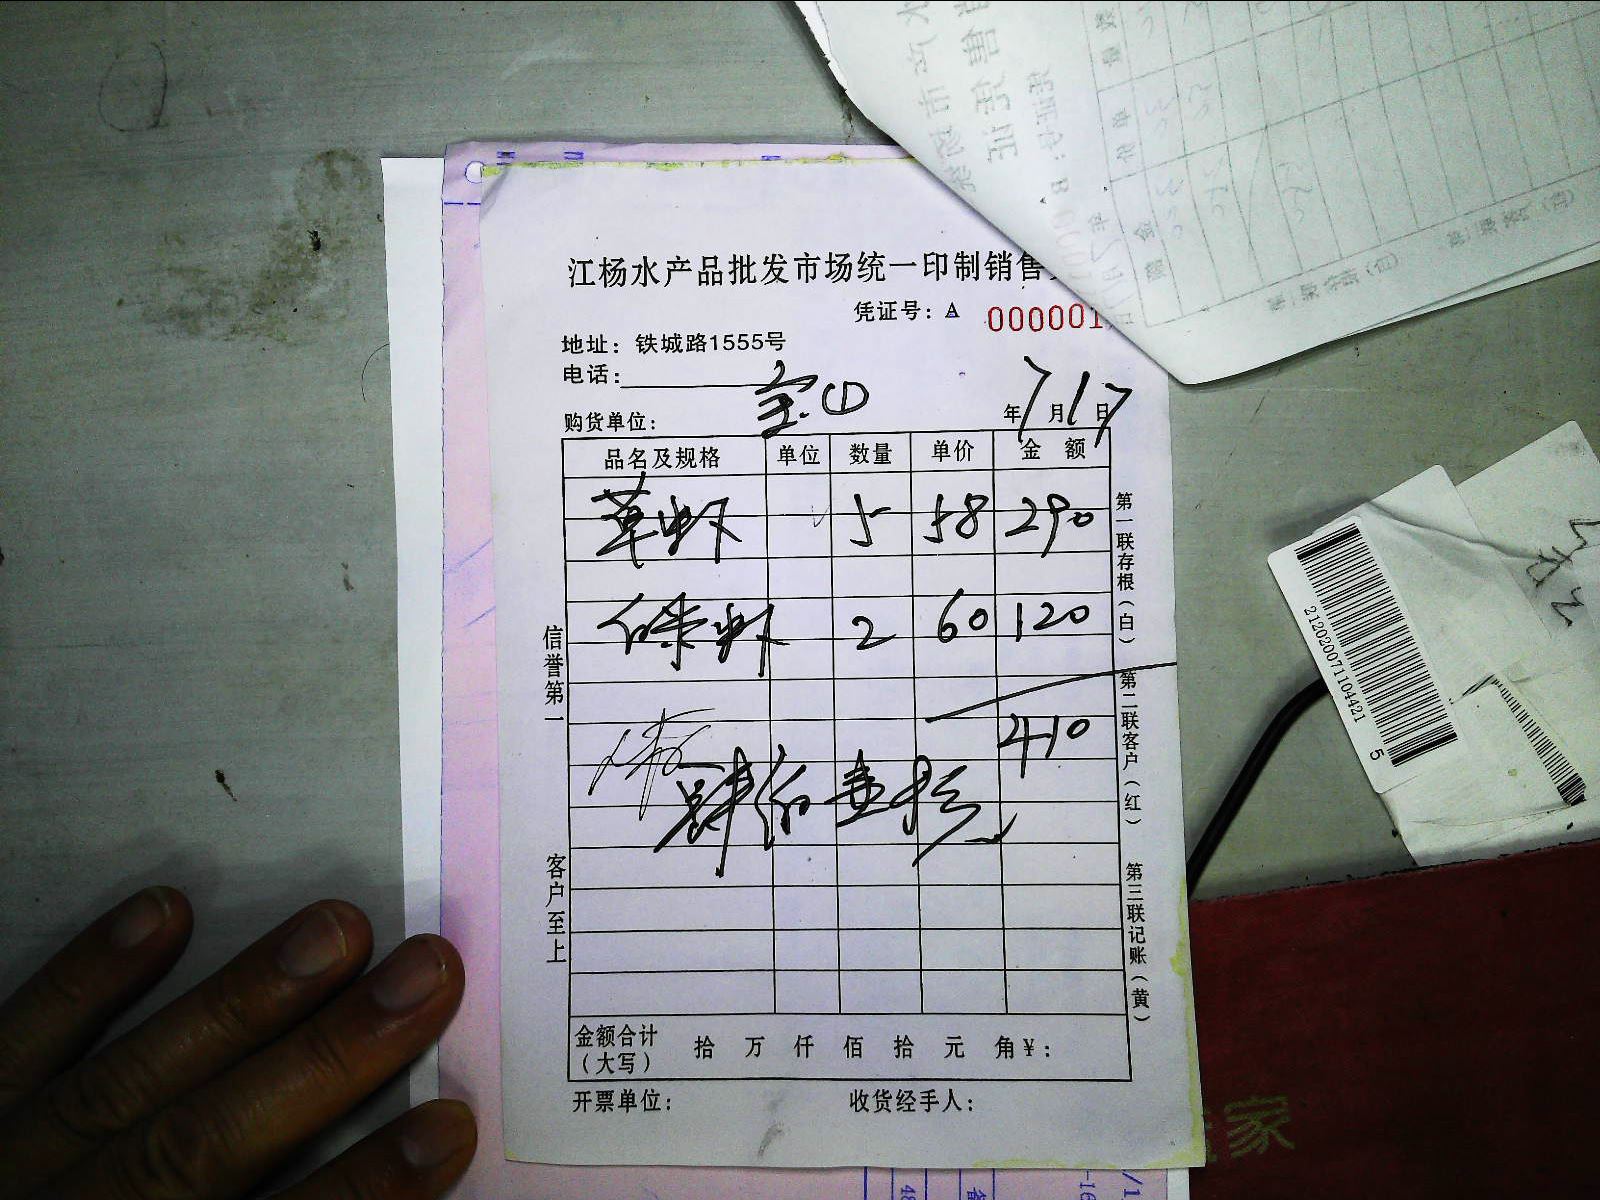 江杨水产品批发市场统一印制销售
凭证号：A 000001
地址：铁城路1555号
电话：
宝.①
购货单位： 年7月17日
品名及规格 单位 数量 单价 金额
草虾 5 58 290
白米虾 2 60 120
410
肆佰壹拾元
金额合计（大写） 拾 万 仟 佰 拾 元 角 ¥：
开票单位： 收货经手人：
信誉第一
客户至上
第一联存根（白）
第二联客户（红）
第三联记账（黄）
2120200711044215
家